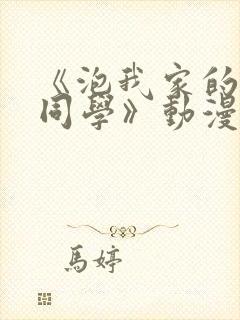 《泡我家的
同學》動漫
馬婷